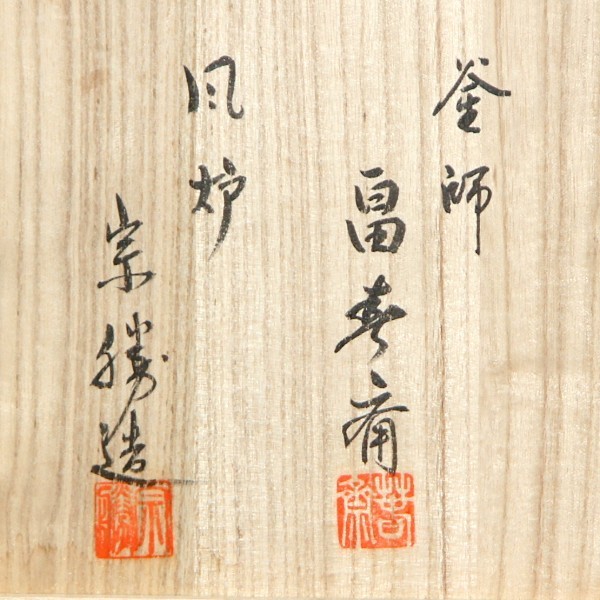 釜師
畠春斎
风炉
宗勝造